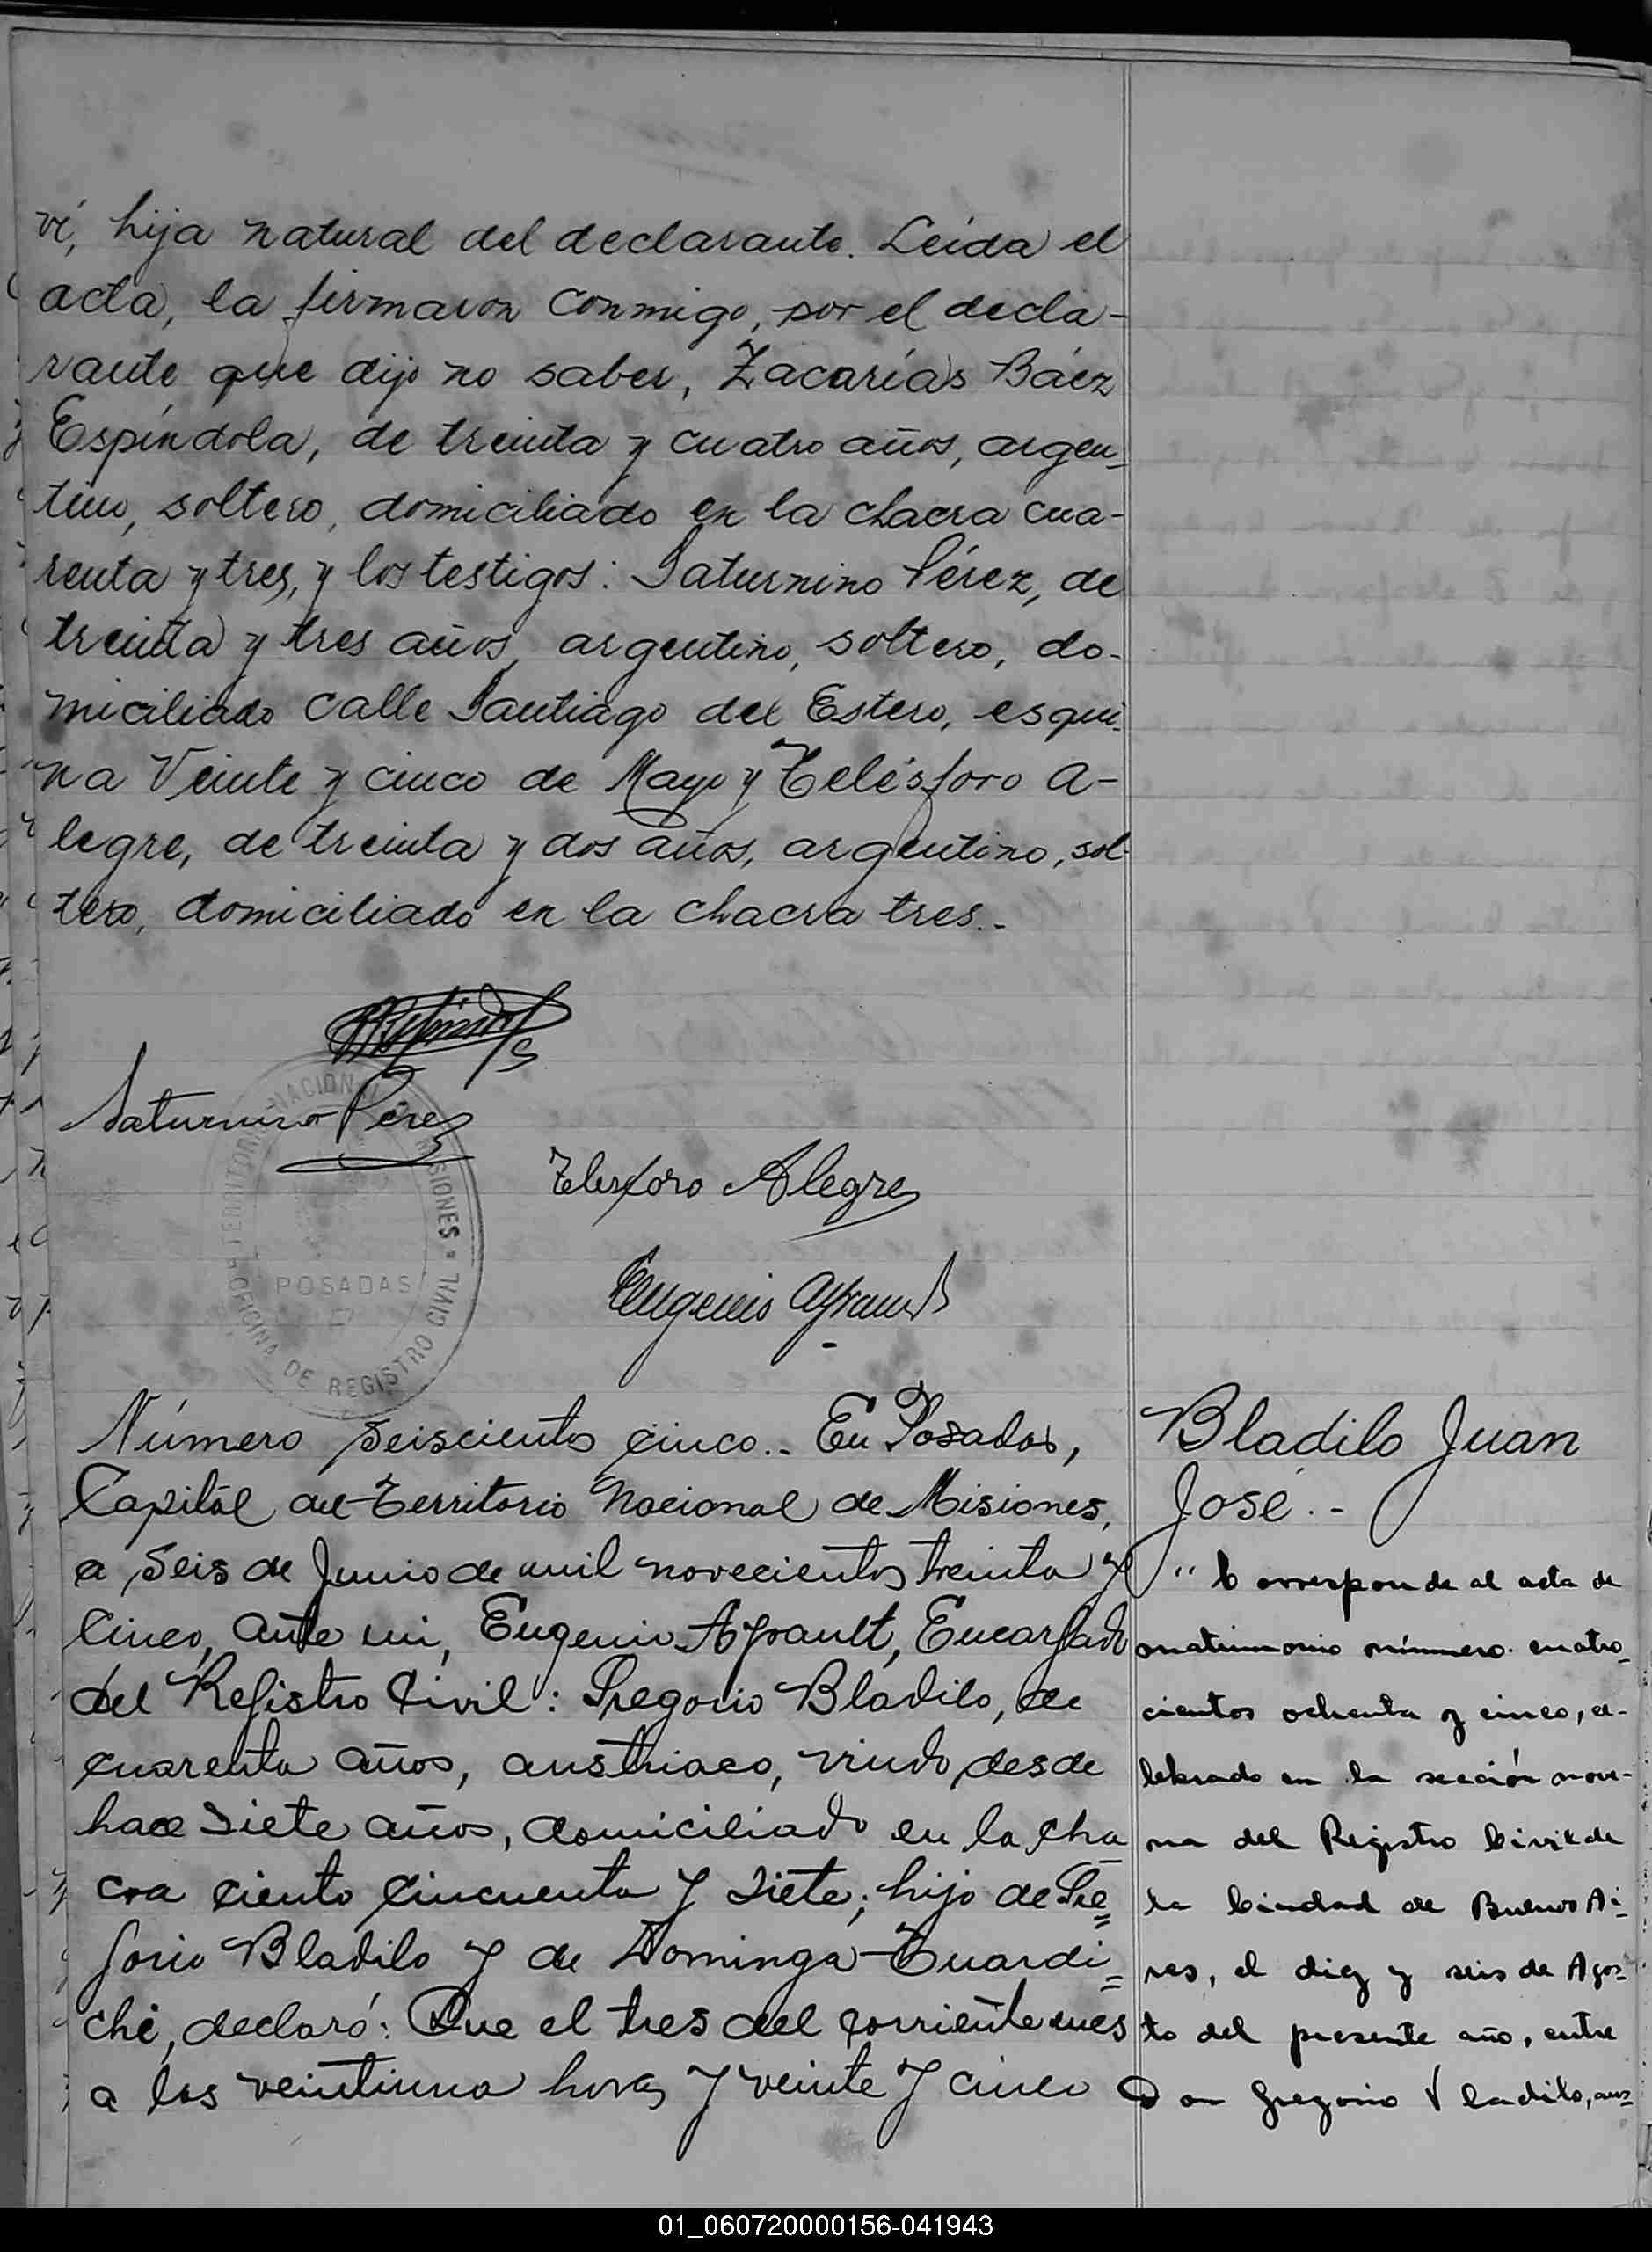 ví, hija natural del declarante. Leída el
acta, la firmaron conmigo, por el decla-
rante que dijo no saber, Zacarías Báez
Espíndola, de treinta y cuatro años, argen-
tino, soltero, domiciliado en la chacra cua-
renta y tres, y los testigos: Saturnino Pérez, de
treinta y tres años, argentino, soltero, do-
miciliado calle Santiago del Estero, esqui-
na Veinte y cinco de Mayo y Telésforo A-
legre, de treinta y dos años, argentino, sol-
tero, domiciliado en la chacra tres.-
Saturnino Pérez
Telesforo Alegre
Eugenio
TERRITORIO NACIONAL MISIONES
POSADAS
OFICINA DE REGISTRO CIVIL
Número seiscientos cinco.- En Posadas,
Capital del Territorio Nacional de Misiones,
a seis de Junio de mil novecientos treinta y
cinco, ante mi, Eugenio Ayrault, Encargado
del Registro Civil: Gregorio Bladilo, de
cuarenta años, austriaco, viudo desde
hace siete años, domiciliado en la cha
cra ciento cincuenta y siete; hijo de Gre=
gorio Bladilo y de Dominga Tuardi=
che, declaró: Que el tres del corriente mes
a las veintiuna horas y veinte y cinco
Bladilo Juan
José.-
"Corresponde al acta de
matrimonio número cuatro-
cientos ochenta y cinco, ce-
lebrado en la sección nove-
na del Registro Civil de
la Ciudad de Buenos Ai-
res, el diez y seis de Agos-
to del presente año, entre
Don Gregorio Vladilo, aus=
01_060720000156-041943